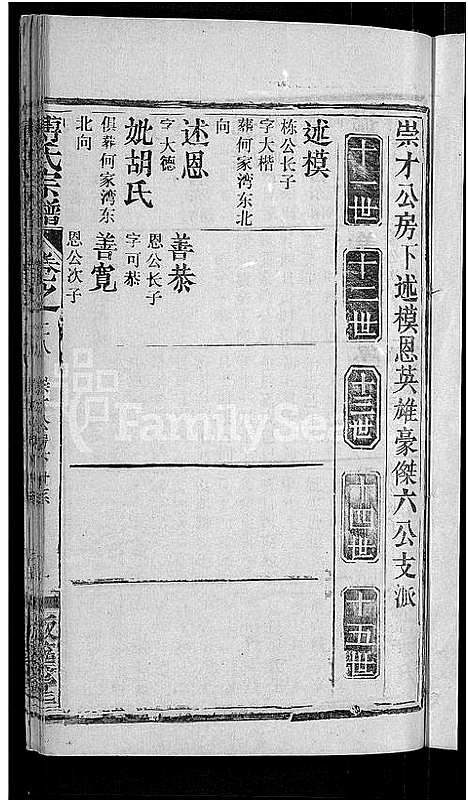 崇才公房下述模恩英雄豪傑六公支派
十一世
十二世
十三世
十四世
十五世
述模
栋公长子
字大楷
葬何家湾东北
向
述恩
字大德
妣胡氏
俱葬何家湾东
北向
善恭
恩公长子
字可恭
善寬
恩公次子
氏宗譜
卷之
FamilySe